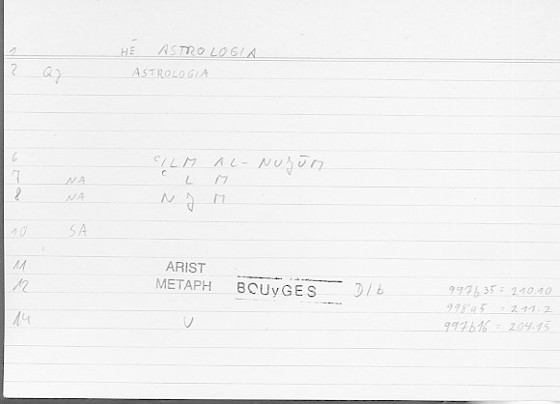 1 HĒ ASTROLOGIA
2 Qj ASTROLOGIA
6 ʿILM AL-NUǦŪM
7 NA ʿ L M
8 NA N Ǧ M
10 SA
11 ARIST
12 METAPH BOUyGES D/b 997b35 = 210.10
998a5 = 211.2
14 U 997b16 = 204.15